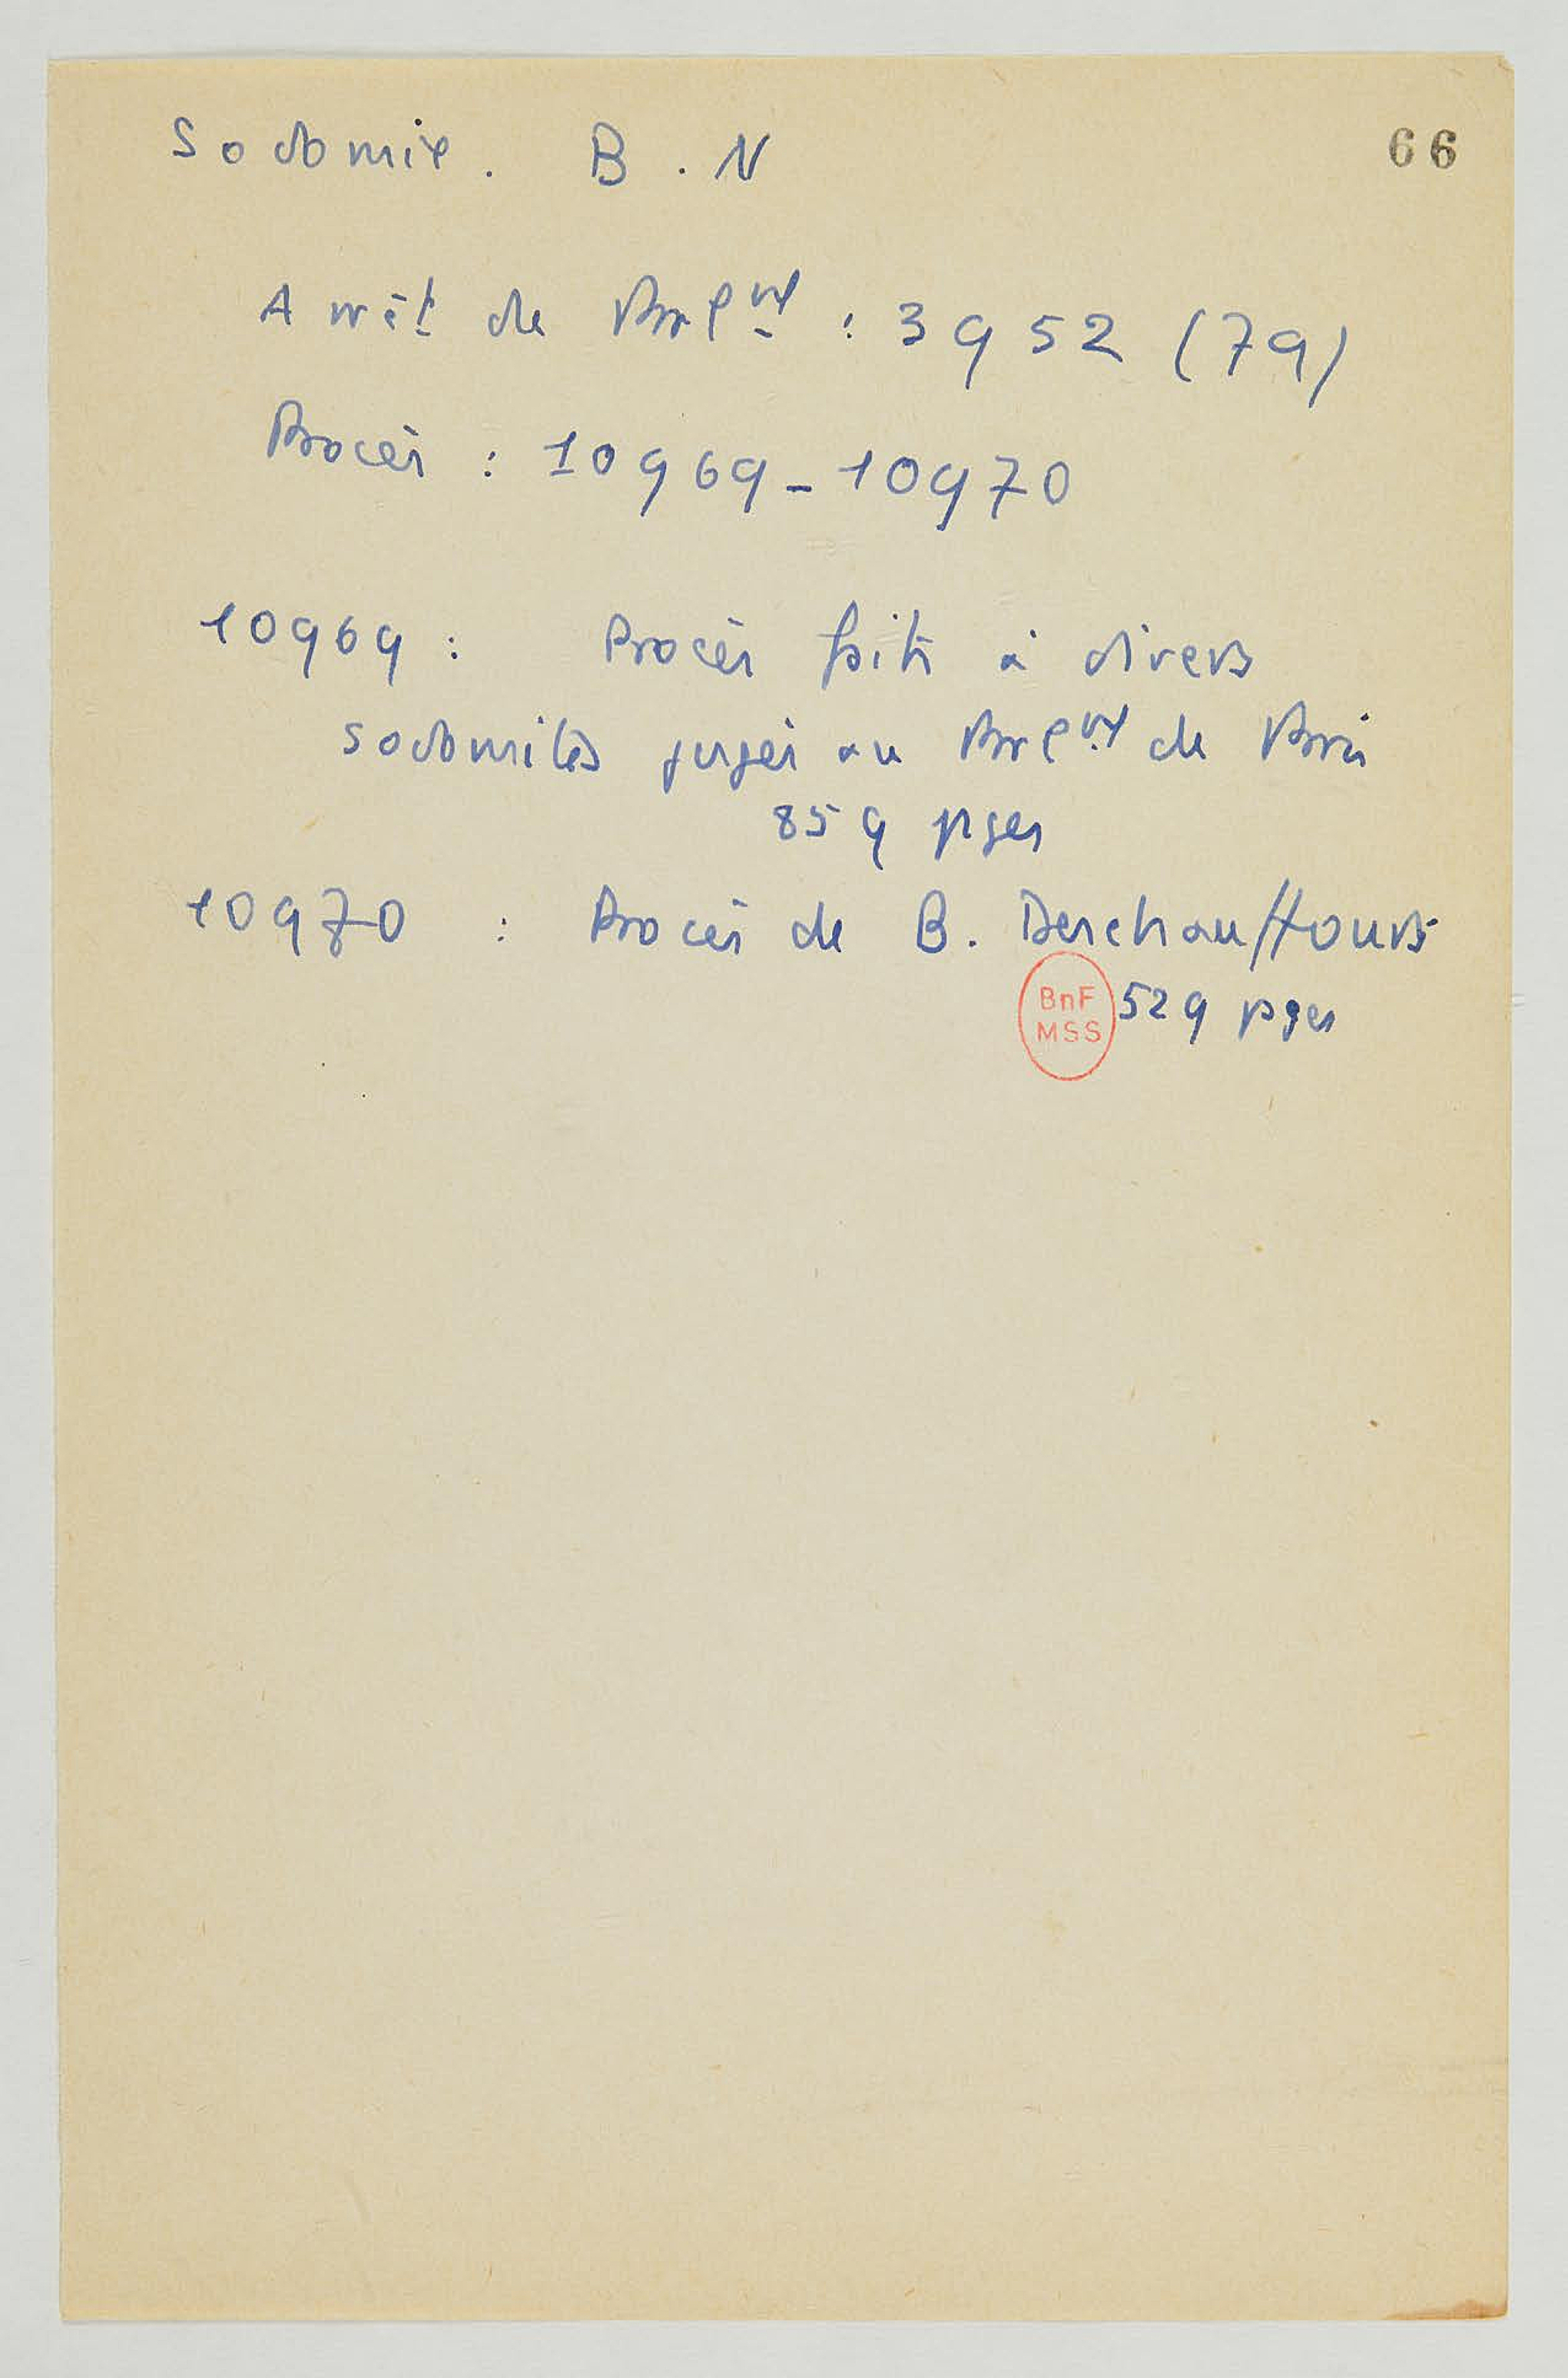 Sodomie. B.N
66
Arrêt de Parl^nt : 3952 (79)
Procès : 10969-10970
10969 : Procès faits à divers
sodomites jugés au Parl^nt de Paris
859 pges
10970 : Procès de B. Deschauffours
BnF
MSS
529 pges